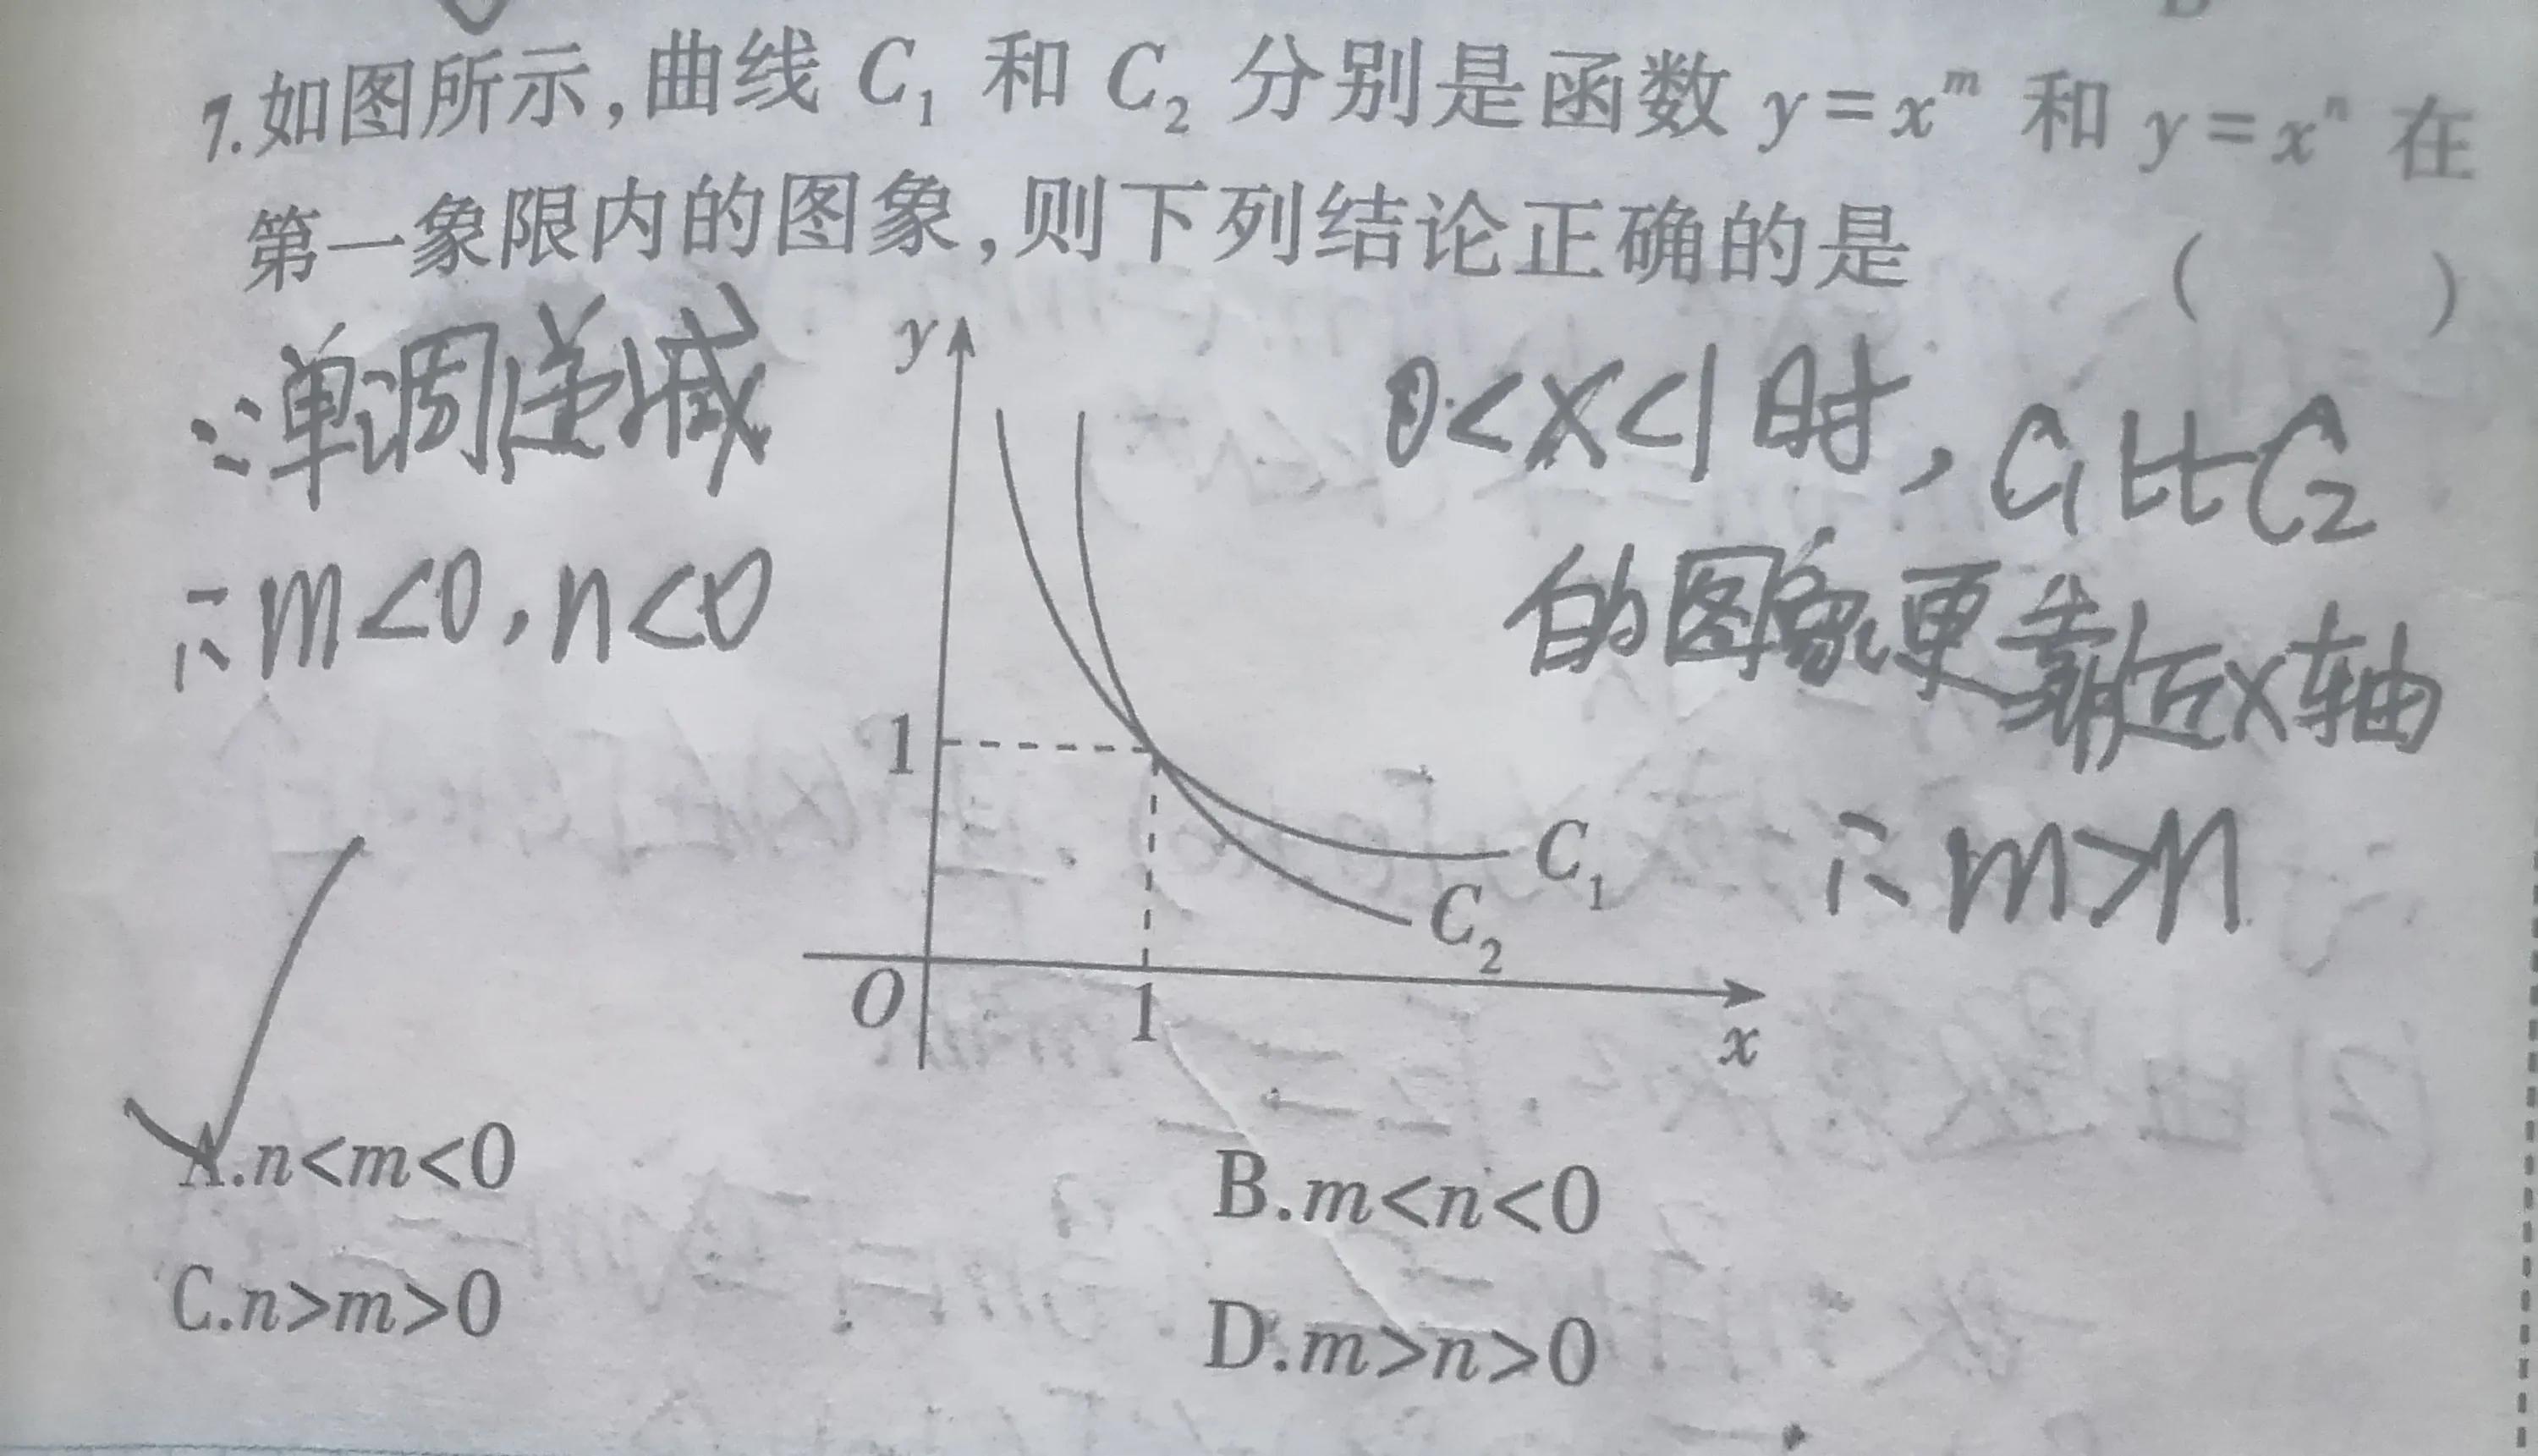 7.如图所示,曲线 C₁ 和 C₂ 分别是函数 y=xᵐ 和 y=xⁿ 在
第一象限内的图象,则下列结论正确的是 ( )
∵单调递减
∴m<0,n<0
0<x<1时,C₁比C₂
的图象更靠近x轴
∴m>n
y
1
C₁
C₂
O
1
x
A.n<m<0
B.m<n<0
C.n>m>0
D.m>n>0